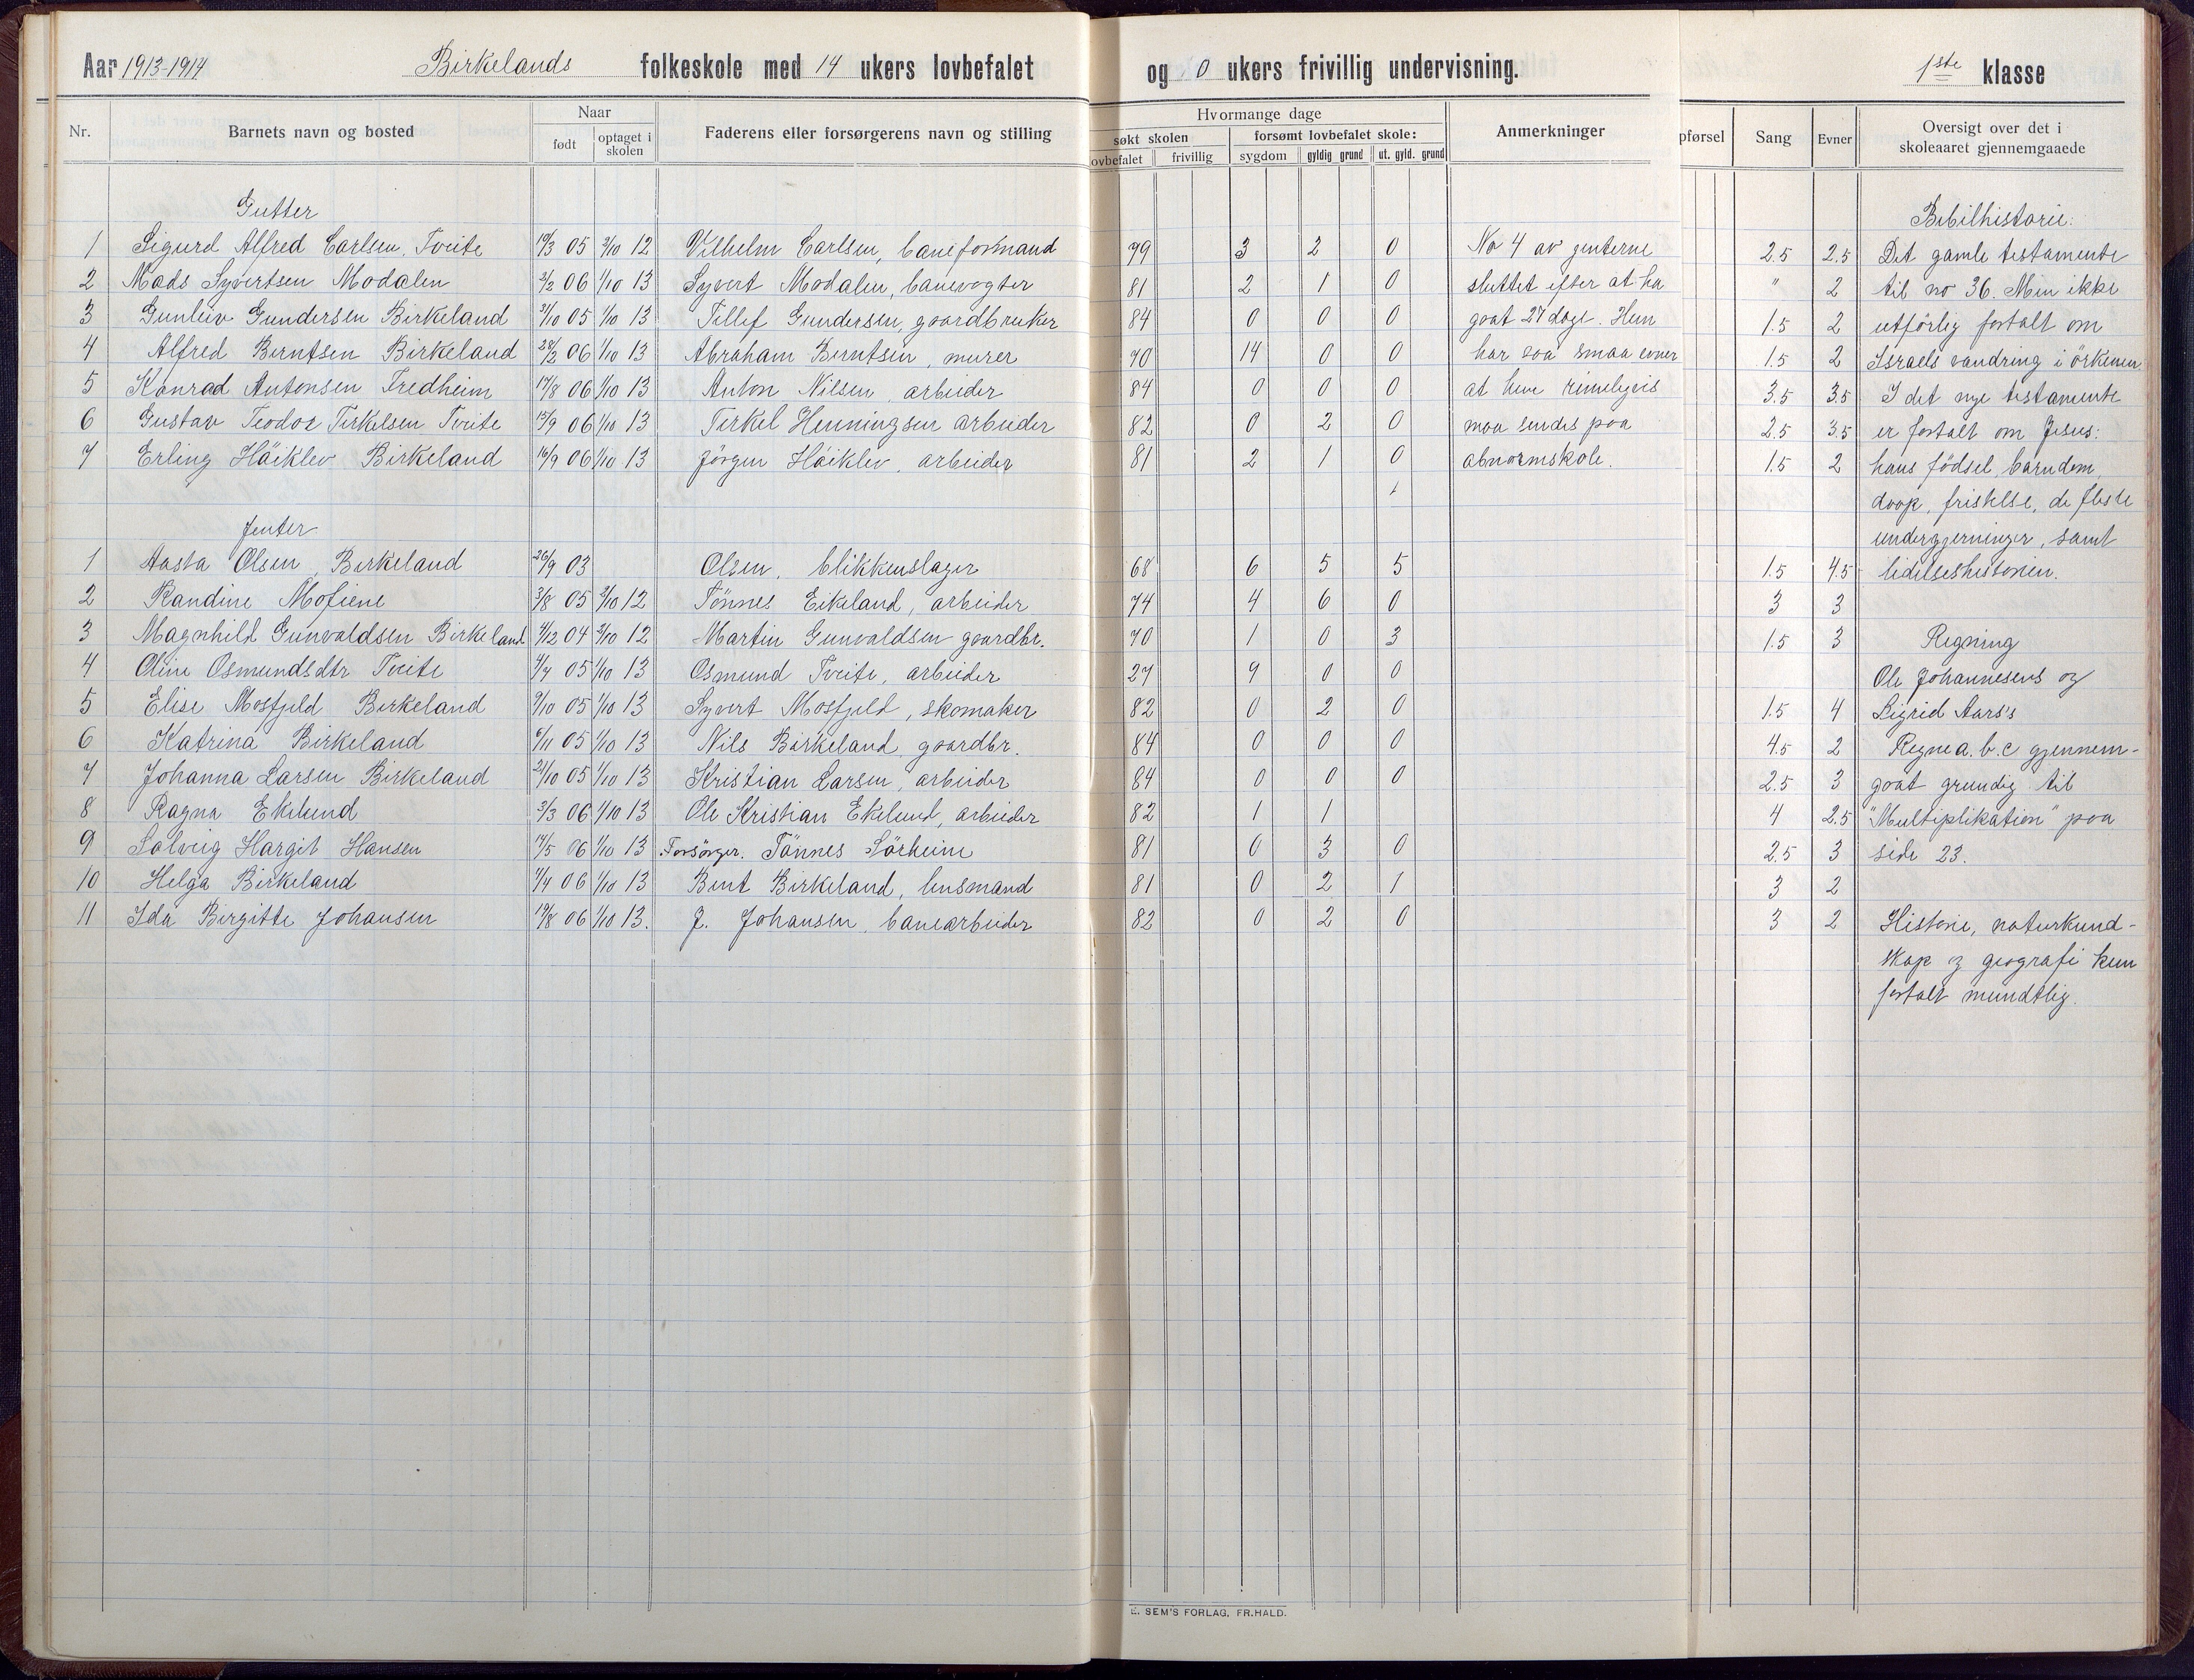 Aar 1913-1914 Birkelands folkeskole med 14 ukers lovbefalet og 0 ukers frivillig undervisning. 1ste klasse
Nr. Barnets navn og bosted Naar født optaget i skolen Faderens eller forsørgerens navn og stilling Hvormange dage søkt skolen ovbefalet frivillig forsømt lovbefalet skole: sygdom gyldig grund ut. gyld. grund Anmerkninger pførsel Sang Evner Oversigt over det i skoleaaret gjennemgaaede
Gutter Bibilhistorie:
1 Sigurd Alfred Carlsen, Tveite 19/3 05 3/10 12 Vilhelm Carlsen, baneformand 79 3 2 0 No 4 av jenterne 2.5 2.5 Det gamle testamente
2 Mads Syvertsen Modalen 3/2 06 1/10 13 Syvert Modalen, banevogter 81 2 1 0 sluttet efter at ha " 2 til no 36. Men ikke
3 Gunleiv Gundersen Birkeland 31/10 05 1/10 13 Tellef Gundersen, gaardbruker 84 0 0 0 gaat 27 dage. Hun 1.5 2 utförlig fortalt om
4 Alfred Berntsen Birkeland 28/2 06 1/10 13 Abraham Berntsen, murer 70 14 0 0 har saa smaa evner 1.5 2 Israels vandring i örkenen.
5 Konrad Antonsen Fredheim 17/8 06 1/10 13 Anton Nilsen, arbeider 84 0 0 0 at hun rimeligvis 3.5 3.5 I det nye testamente
6 Gustav Teodor Terkelsen Tveite 15/9 06 1/10 13 Terkel Henningsen arbeider 82 0 2 0 maa sendes paa 2.5 3.5 er fortalt om Jesus:
7 Erling Höiklev Birkeland 16/9 06 1/10 13 Jörgen Höiklev, arbeider 81 2 1 0 abnormskole. 1.5 2 hans födsel, barndom,
daap, fristelse, de fleste
Jenter undergjerninger, samt
1 Aasta Olsen, Birkeland 26/9 03 Olsen, blikkenslager 68 6 5 5 1.5 4.5 lidelseshistorien.
2 Randine Mofiene 3/8 05 3/10 12 Tönnes Eikeland, arbeider 74 4 6 0 3 3
3 Magnhild Gunvaldsen Birkeland 4/12 04 3/10 12 Martin Gunvaldsen gaardbr. 70 1 0 3 1.5 3 Regning
4 Oline Osmundsdtr Tveite 4/7 05 1/10 13 Osmund Tveite, arbeider 27 9 0 0 Ole Johannesens og
5 Elise Mosfjeld Birkeland 9/10 05 1/10 13 Syvert Mosfjeld, skomaker 82 0 2 0 1.5 4 Sigrid Aars's
6 Katrina Birkeland 6/11 05 1/10 13 Nils Birkeland, gaardbr. 84 0 0 0 4.5 2 Regne a. b. c gjennem-
7 Johanna Larsen Birkeland 21/10 05 1/10 13 Kristian Larsen, arbeider 84 0 0 0 2.5 3 gaat grundig til
8 Ragna Ekelund 3/3 06 1/10 13 Ole Kristian Ekelund, arbeider 82 1 1 4 2.5 "Multiplikation" paa
9 Solveig Hargit Hansen 14/5 06 1/10 13 Forsörger. Tönnes Sörheim 81 0 3 0 2.5 3 side 23.
10 Helga Birkeland 7/7 06 1/10 13 Bent Birkeland, lensmand 81 0 2 1 3 2
11 Ida Birgitte Johansen 19/8 06 1/10 13. J. Johansen, banearbeider 82 0 2 0 3 2 Historie, naturkund-
skap og geografi kun
fortalt mundtlig.
E. SEM'S FORLAG, FR.HALD.